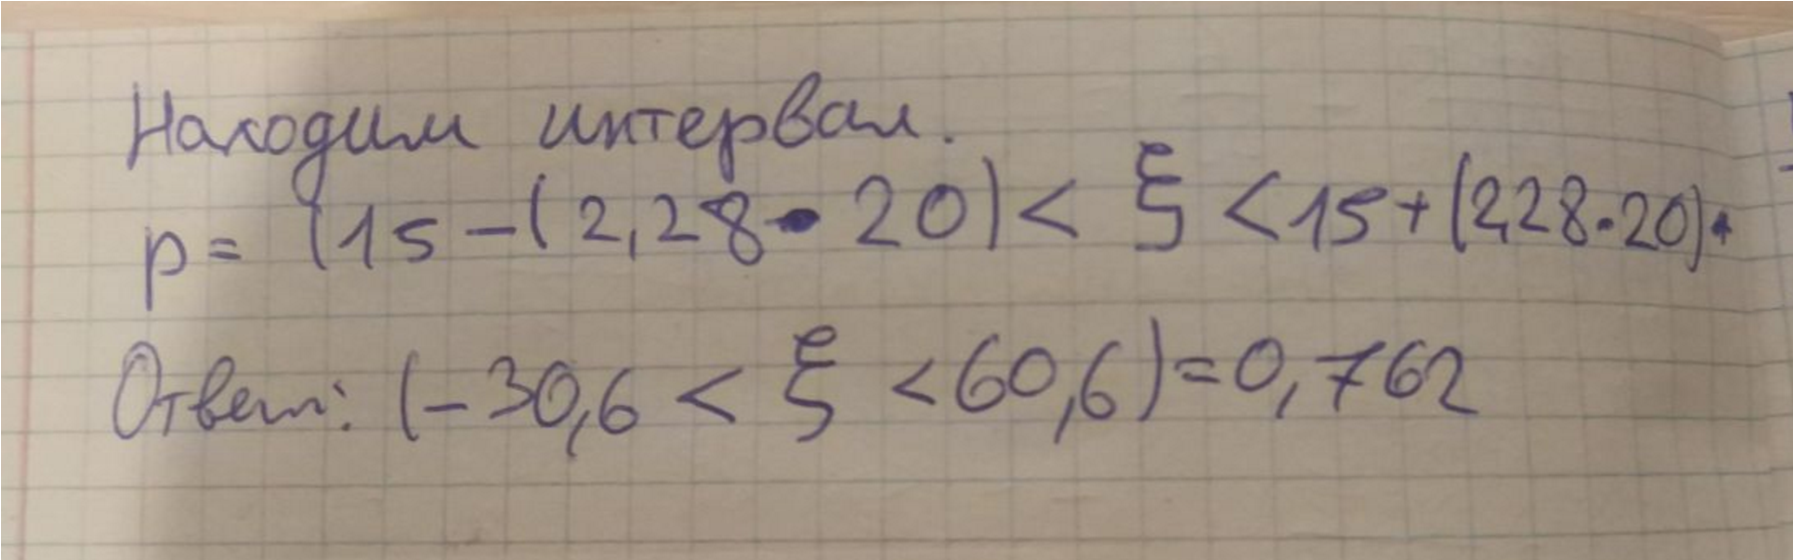 Находим интервал.
p = (15 - (2,28 • 20) < ξ < 15 + (2,28 • 20).
Ответ: (- 30,6 < ξ < 60,6) = 0,762